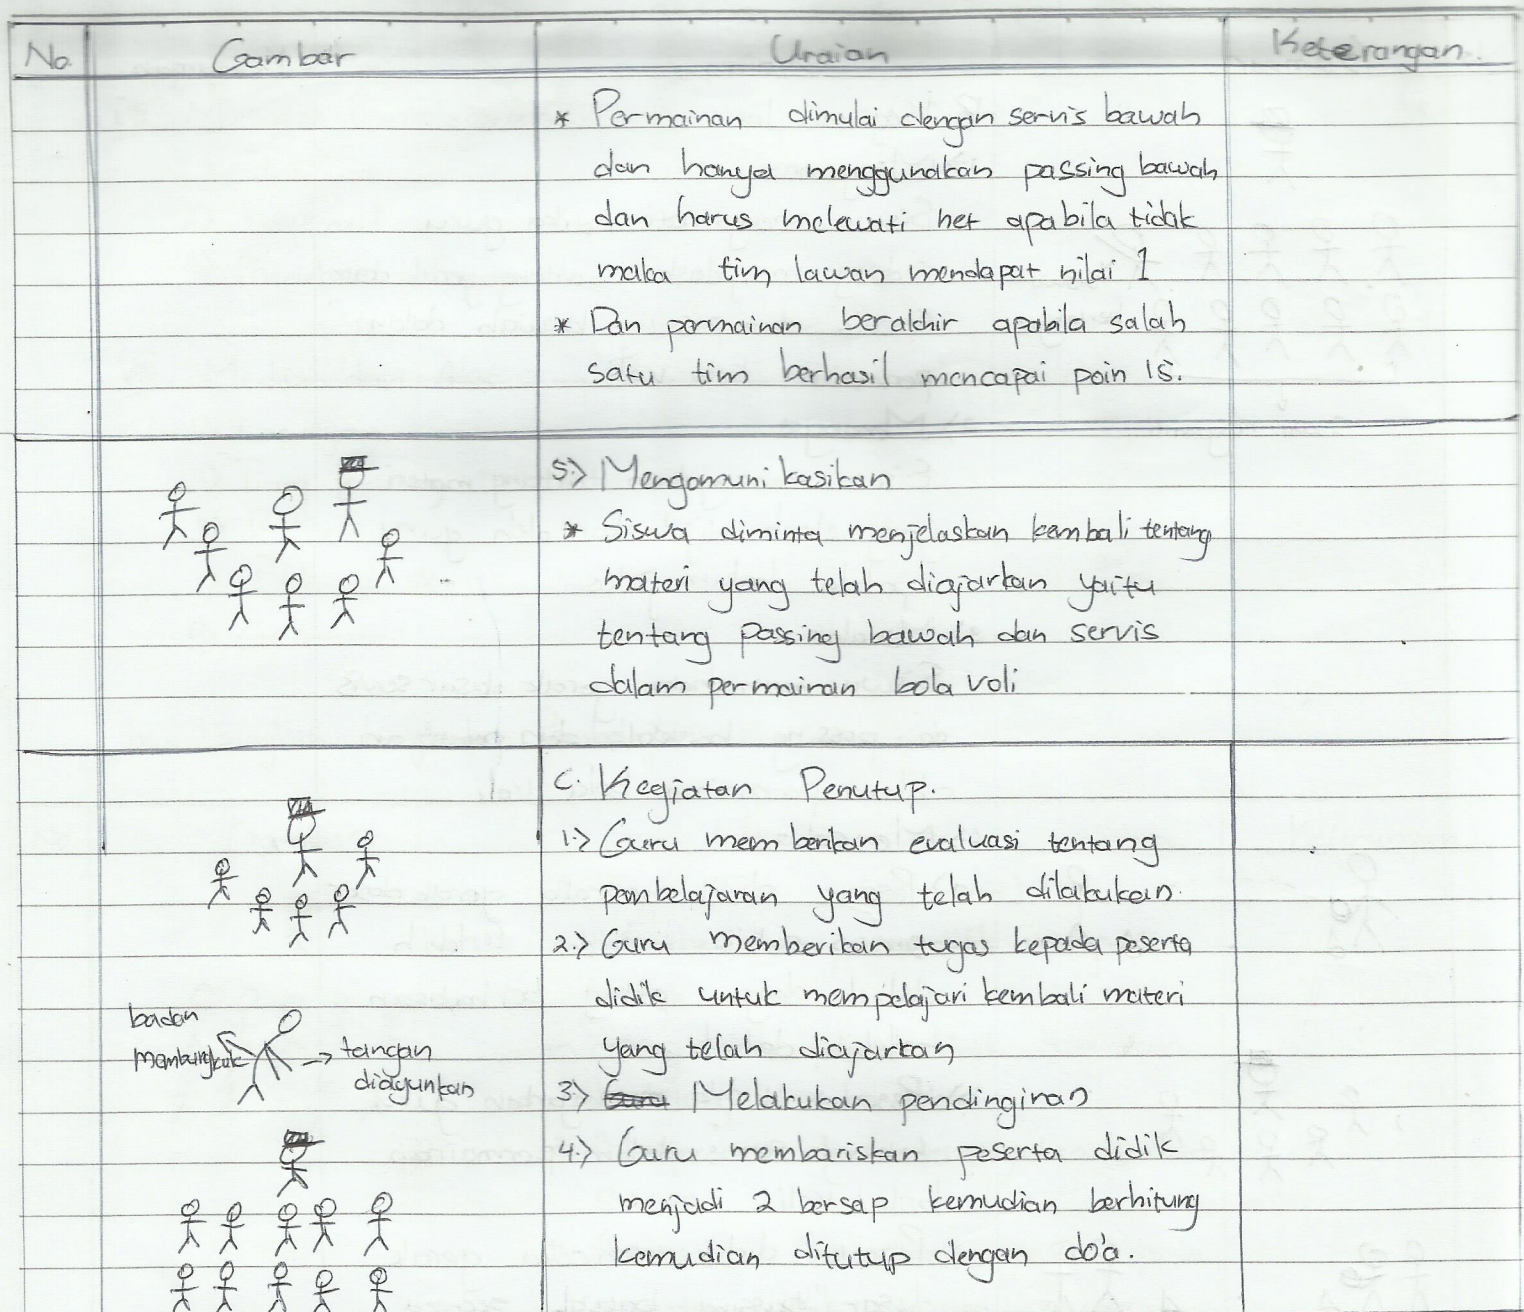 No. Gambar Uraian Keterangan
* Permainan dimulai dengan servis bawah
dan hanya menggunakan passing bawah
dan harus melewati net apabila tidak
maka tim lawan mendapat nilai 1
* Dan permainan berakhir apabila salah
satu tim berhasil mencapai poin 15.
5.) Mengomunikasikan
* Siswa diminta menjelaskan kembali tentang
materi yang telah diajarkan yaitu
tentang passing bawah dan servis
dalam permainan bola voli
C. Kegiatan Penutup.
1.) Guru memberikan evaluasi tentang
pembelajaran yang telah dilakukan.
2.) Guru memberikan tugas kepada peserta
didik untuk mempelajari kembali materi
yang telah diajarkan
badan
membungkuk
→ tangan
diayunkan
3.) Guru Melakukan pendinginan
4.) Guru membariskan peserta didik
menjadi 2 bersap kemudian berhitung
kemudian ditutup dengan do'a.